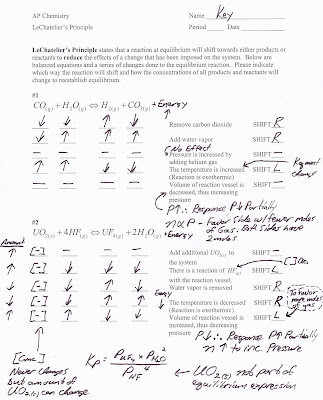 AP Chemistry Name Key
LeChatelier's Principle Period Date
LeChatelier's Principle states that a reaction at equilibrium will shift towards either products or
reactants to reduce the effects of a change that has been imposed on the system. Below are
balanced equations and a series of changes done to the equilibrium reaction. Please indicate
which way the reaction will shift and how the concentrations of all products and reactants will
change to reestablish equilibrium.
#1
CO(g) + H2O(g) ⇔ H2(g) + CO2(g) + Energy
↓ ↓ ↑ ↓ Remove carbon dioxide SHIFT R
↓ ↑ ↑ ↑ Add water vapor SHIFT R
No Effect
— — — — Pressure is increased by SHIFT —
adding helium gas
↑ ↑ ↓ ↓ The temperature is increased SHIFT L
(Reaction is exothermic)
— — — — Volume of reaction vessel is SHIFT —
decreased, thus increasing
pressure
P↑ ∴ Response P↓ Partially
n α P - Favor side w/ fewer moles
of Gas. Both sides have
2 moles
#2
UO2(s) + 4HF(g) ⇔ UF4(g) + 2H2O(g) + Energy
Amount
↑ [-] — — — Add additional UO2(s) to SHIFT —
the system
There is a reaction of HF(g) SHIFT L
with the reaction vessel.
Water vapor is removed SHIFT R
Energy
The temperature is decreased SHIFT R
(Reaction is exothermic)
Volume of reaction vessel is SHIFT L
increased, thus decreasing
pressure
To Favor
more moles
of gas
P↓ ∴ Response P↑ Partially
n ↑ to inc. Pressure
[Conc]
Never Changes
But amount of
UO2(s) can change
Kp = PUF4 × PH2O² / PHF⁴
← UO2(s) not part of
equilibrium expression